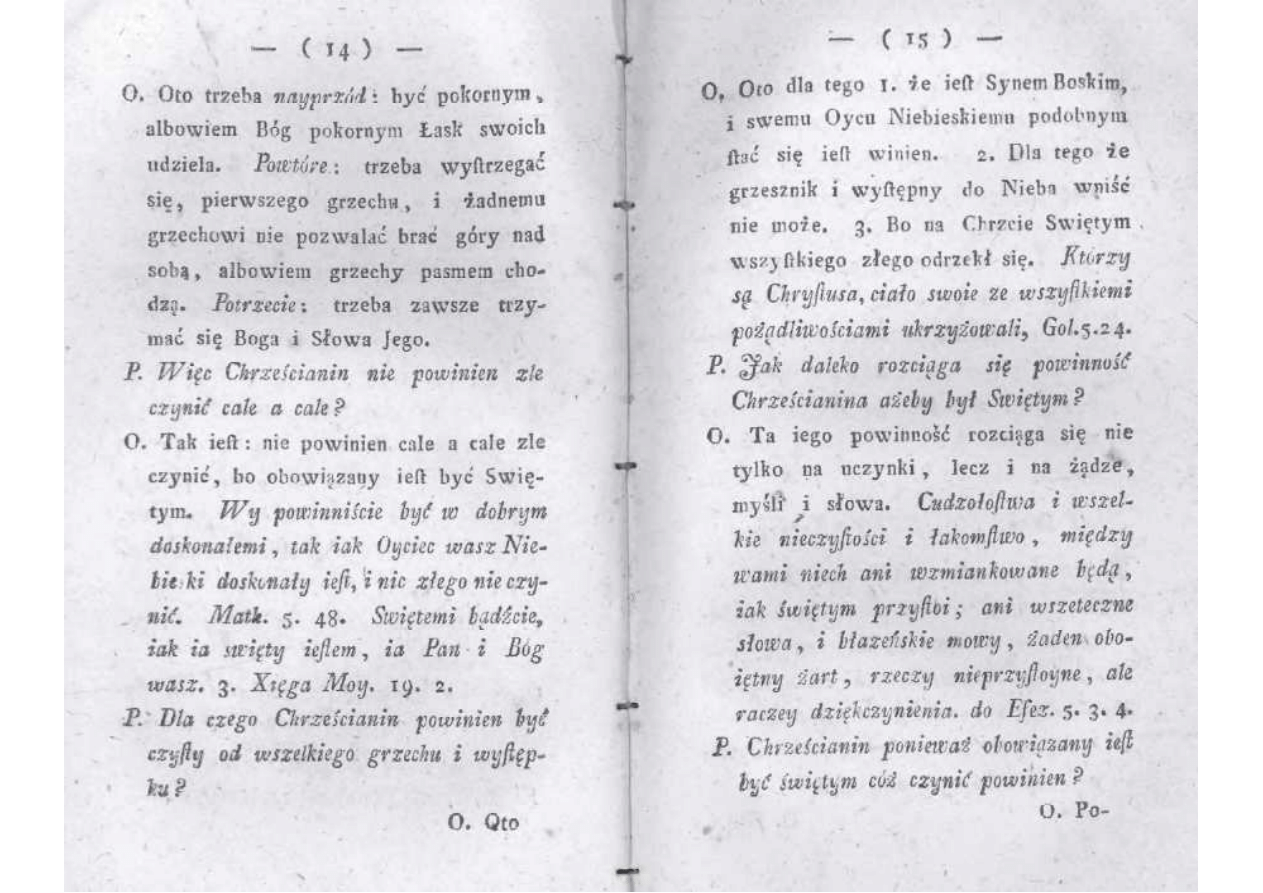 — ( 14 ) —
O. Oto trzeba nayprzód: być pokornym,
albowiem Bóg pokornym Łask swoich
udziela. Powtóre: trzeba wyſtrzegać
się, pierwszego grzechu, i żadnemu
grzechowi nie pozwalać brać góry nad
sobą, albowiem grzechy pasmem cho-
dzą. Potrzecie: trzeba zawsze trzy-
mać się Boga i Słowa Jego.
P. Więc Chrześcianin nie powinien zle
czynić cale a cale?
O. Tak ieſt: nie powinien cale a cale zle
czynić, bo obowiązany ieſt być Swię-
tym. Wy powinniście być w dobrym
doskonałemi, tak iak Oyciec wasz Nie-
bieski doskonały ieſt, i nic złego nie czy-
nić. Math. 5. 48. Swiętemi bądźcie,
iak ia swięty ieſtem, ia Pan i Bóg
wasz. 3. Xięga Moy. 19. 2.
P. Dla czego Chrześcianin powinien być
czyſty od wszelkiego grzechu i wyſtęp-
ku?
O. Oto
— ( 15 ) —
O. Oto dla tego 1. że ieſt Synem Boskim,
i swemu Oycu Niebieskiemu podobnym
ſtać się ieſt winien. 2. Dla tego że
grzesznik i wyſtępny do Nieba wniść
nie może. 3. Bo na Chrzcie Swiętym
wszyſtkiego złego odrzekł się. Którzy
są Chryſtusa, ciało swoie ze wszyſtkiemi
pożądliwościami ukrzyżowali, Gol. 5. 24.
P. Jak daleko rozciąga się powinność
Chrześcianina ażeby był Swiętym?
O. Ta iego powinność rozciąga się nie
tylko na uczynki, lecz i na żądze,
myśli i słowa. Cudzołoſtwa i wszel-
kie nieczyſtości i łakomſtwo, między
wami niech ani wzmiankowane będą,
iak świętym przyſtoi; ani wszeteczne
słowa, i błazeńskie mowy, żaden obo-
iętny żart, rzeczy nieprzyſtoyne, ale
raczey dziękczynienia. do Efez. 5. 3. 4.
P. Chrześcianin ponieważ obowiązany ieſt
być świętym cóż czynić powinien?
O. Po-